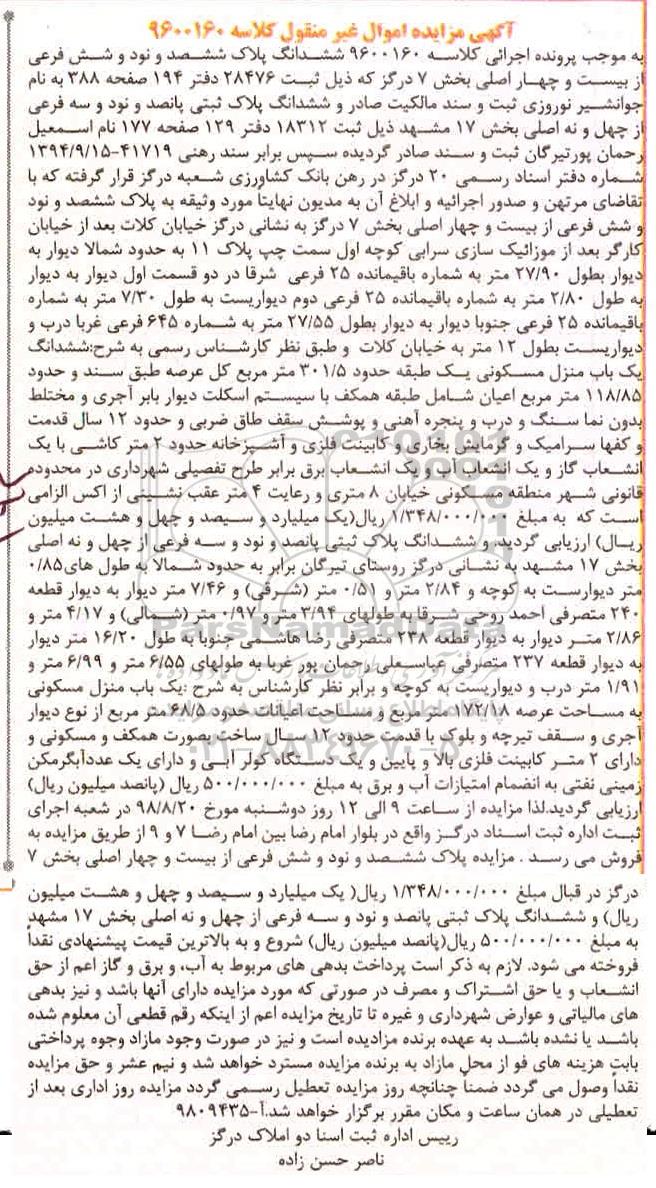 آگهی مزایده اموال غیر منقول کلاسه ۹۶۰۰۱۶۰
به موجب پرونده اجرائی کلاسه ۹۶۰۰۱۶۰ ششدانگ پلاک ششصد و نود و شش فرعی
از بیست و چهار اصلی بخش ۷ درگز که ذیل ثبت ۲۸۴۷۶ دفتر ۱۹۴ صفحه ۳۸۸ به نام
جوانشیر نوروزی ثبت و سند مالکیت صادر و ششدانگ پلاک ثبتی پانصد و نود و سه فرعی
از چهل و نه اصلی بخش ۱۷ مشهد ذیل ثبت ۱۸۳۱۲ دفتر ۱۲۹ صفحه ۱۷۷ نام اسمعیل
رحمان پورتیرگان ثبت و سند صادر گردیده سپس برابر سند رهنی ۴۱۷۱۹-۱۳۹۴/۹/۱۵
شماره دفتر اسناد رسمی ۲۰ درگز در رهن بانک کشاورزی شعبه درگز قرار گرفته که با
تقاضای مرتهن و صدور اجرائیه و ابلاغ آن به مدیون نهایتاً مورد وثیقه به پلاک ششصد و نود
و شش فرعی از بیست و چهار اصلی بخش ۷ درگز به نشانی درگز خیابان کلات بعد از خیابان
کارگر بعد از موزائیک سازی سرابی کوچه اول سمت چپ پلاک ۱۱ به حدود شمالا دیوار به
دیوار بطول ۲۷/۹۰ متر به شماره باقیمانده ۲۵ فرعی شرقا در دو قسمت اول دیوار به دیوار
به طول ۲/۸۰ متر به شماره باقیمانده ۲۵ فرعی دوم دیواریست به طول ۷/۳۰ متر به شماره
باقیمانده ۲۵ فرعی جنوبا دیوار به دیوار بطول ۲۷/۵۵ متر به شماره ۶۴۵ فرعی غربا درب و
دیواریست بطول ۱۲ متر به خیابان کلات و طبق نظر کارشناس رسمی به شرح:ششدانگ
یک باب منزل مسکونی یک طبقه حدود ۳۰۱/۵ متر مربع کل عرصه طبق سند و حدود
۱۱۸/۸۵ متر مربع اعیان شامل طبقه همکف با سیستم اسکلت دیوار بابر آجری و مختلط
بدون نما سنگ و درب و پنجره آهنی و پوشش سقف طاق ضربی و حدود ۱۲ سال قدمت
و کفها سرامیک و گرمایش بخاری و کابینت فلزی و آشپزخانه حدود ۲ متر کاشی با یک
انشعاب گاز و یک انشعاب آب و یک انشعاب برق برابر طرح تفصیلی شهرداری در محدوده
قانونی شهر منطقه مسکونی خیابان ۸ متری و رعایت ۴ متر عقب نشینی از اکس الزامی
است که به مبلغ ۱/۳۴۸/۰۰۰/۰۰۰ ریال(یک میلیارد و سیصد و چهل و هشت میلیون
ریال) ارزیابی گردید. و ششدانگ پلاک ثبتی پانصد و نود و سه فرعی از چهل و نه اصلی
بخش ۱۷ مشهد به نشانی درگز روستای تیرگان برابر به حدود شمالا به طول های۰/۸۵
متر دیوارست به کوچه و ۲/۸۴ متر و ۰/۵۱ متر (شرقی) و ۷/۴۶ متر دیوار به دیوار قطعه
۲۴۰ متصرفی احمد روحی شرقا به طولهای ۳/۹۴ متر و ۰/۹۷ متر (شمالی) و ۴/۱۷ متر و
۲/۸۶ متر دیوار به دیوار قطعه ۲۳۸ متصرفی رضا هاشمی جنوبا به طول ۱۶/۲۰ متر دیوار
به دیوار قطعه ۲۳۷ متصرفی عباسعلی رحمان پور غربا به طولهای ۶/۵۵ متر و ۶/۹۹ متر و
۱/۹۱ متر درب و دیواریست به کوچه و برابر نظر کارشناس به شرح :یک باب منزل مسکونی
به مساحت عرصه ۱۷۲/۱۸ متر مربع و مساحت اعیانات حدود ۶۸/۵ متر مربع از نوع دیوار
آجری و سقف تیرچه و بلوک با قدمت حدود ۱۲ سال ساخت بصورت همکف و مسکونی و
دارای ۲ متر کابینت فلزی بالا و پایین و یک دستگاه کولر آبی و دارای یک عددآبگرمکن
زمینی نفتی به انضمام امتیازات آب و برق به مبلغ ۵۰۰/۰۰۰/۰۰۰ ریال (پانصد میلیون ریال)
ارزیابی گردید.لذا مزایده از ساعت ۹ الی ۱۲ روز دوشنبه مورخ ۹۸/۸/۲۰ در شعبه اجرای
ثبت اداره ثبت اسناد درگز واقع در بلوار امام رضا بین امام رضا ۷ و ۹ از طریق مزایده به
فروش می رسد . مزایده پلاک ششصد و نود و شش فرعی از بیست و چهار اصلی بخش ۷
درگز در قبال مبلغ ۱/۳۴۸/۰۰۰/۰۰۰ ریال( یک میلیارد و سیصد و چهل و هشت میلیون
ریال) و ششدانگ پلاک ثبتی پانصد و نود و سه فرعی از چهل و نه اصلی بخش ۱۷ مشهد
به مبلغ ۵۰۰/۰۰۰/۰۰۰ ریال(پانصد میلیون ریال) شروع و به بالاترین قیمت پیشنهادی نقداً
فروخته می شود. لازم به ذکر است پرداخت بدهی های مربوط به آب، و برق و گاز اعم از حق
انشعاب و یا حق اشتراک و مصرف در صورتی که مورد مزایده دارای آنها باشد و نیز بدهی
های مالیاتی و عوارض شهرداری و غیره تا تاریخ مزایده اعم از اینکه رقم قطعی آن معلوم شده
باشد یا نشده باشد به عهده برنده مزادیده است و نیز در صورت وجود مازاد وجوه پرداختی
بابت هزینه های فو از محل مازاد به برنده مزایده مسترد خواهد شد و نیم عشر و حق مزایده
نقداً وصول می گردد ضمناً چنانچه روز مزایده تعطیل رسمی گردد مزایده روز اداری بعد از
تعطیلی در همان ساعت و مکان مقرر برگزار خواهد شد.آ-۹۸۰۹۴۳۵
رییس اداره ثبت اسنا دو املاک درگز
ناصر حسن زاده
ParsNamadData
پایگاه اطلاع رسانی مناقصه و مزایده
۰۲۱-۸۸۳۴۹۶۷۰-۵